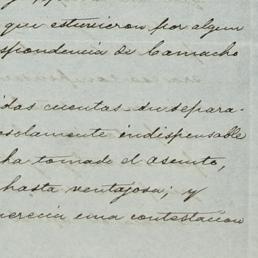 que estuvieron por algun
spondencia de Camacho
das cuentas su separa-
solamente indispensable
ha tomado el asunto,
hasta ventajosa; y
merecia una contestacion